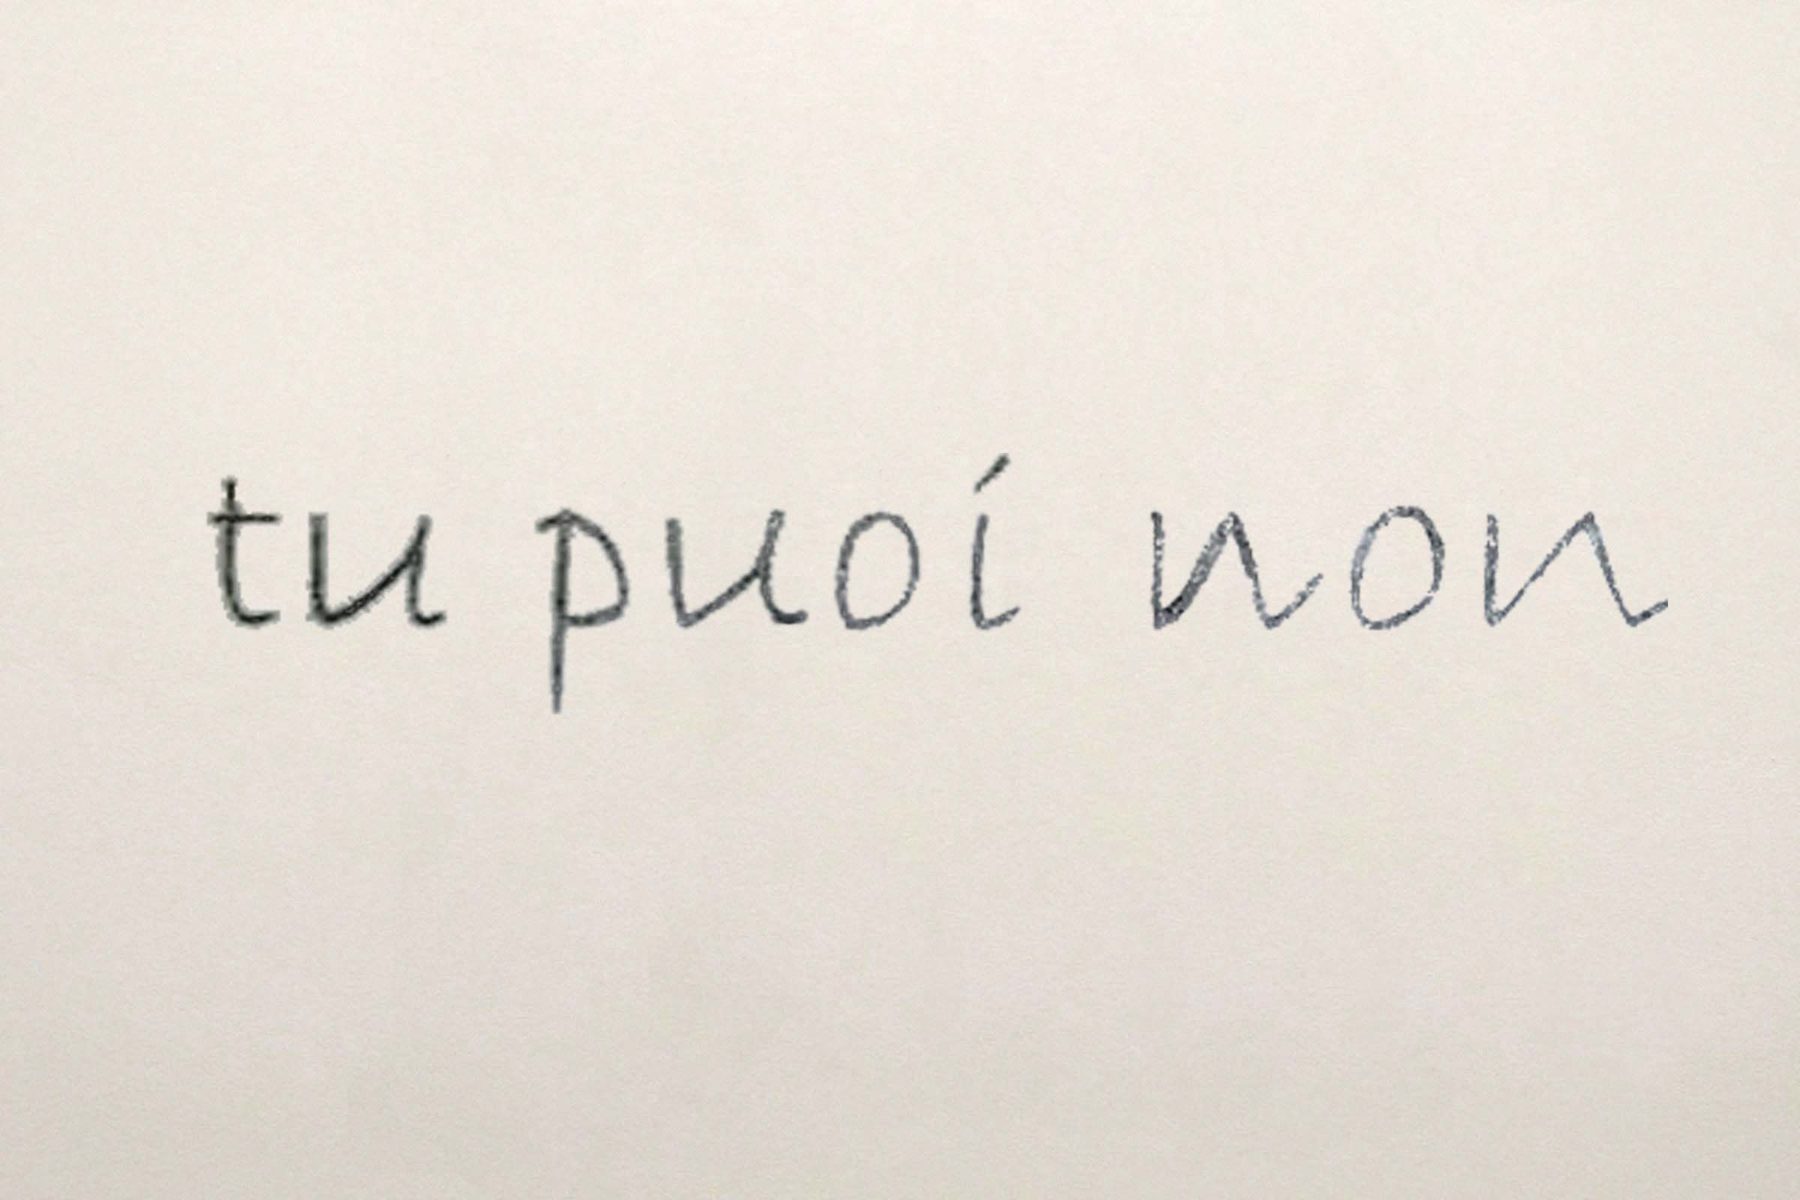 tu puoi non